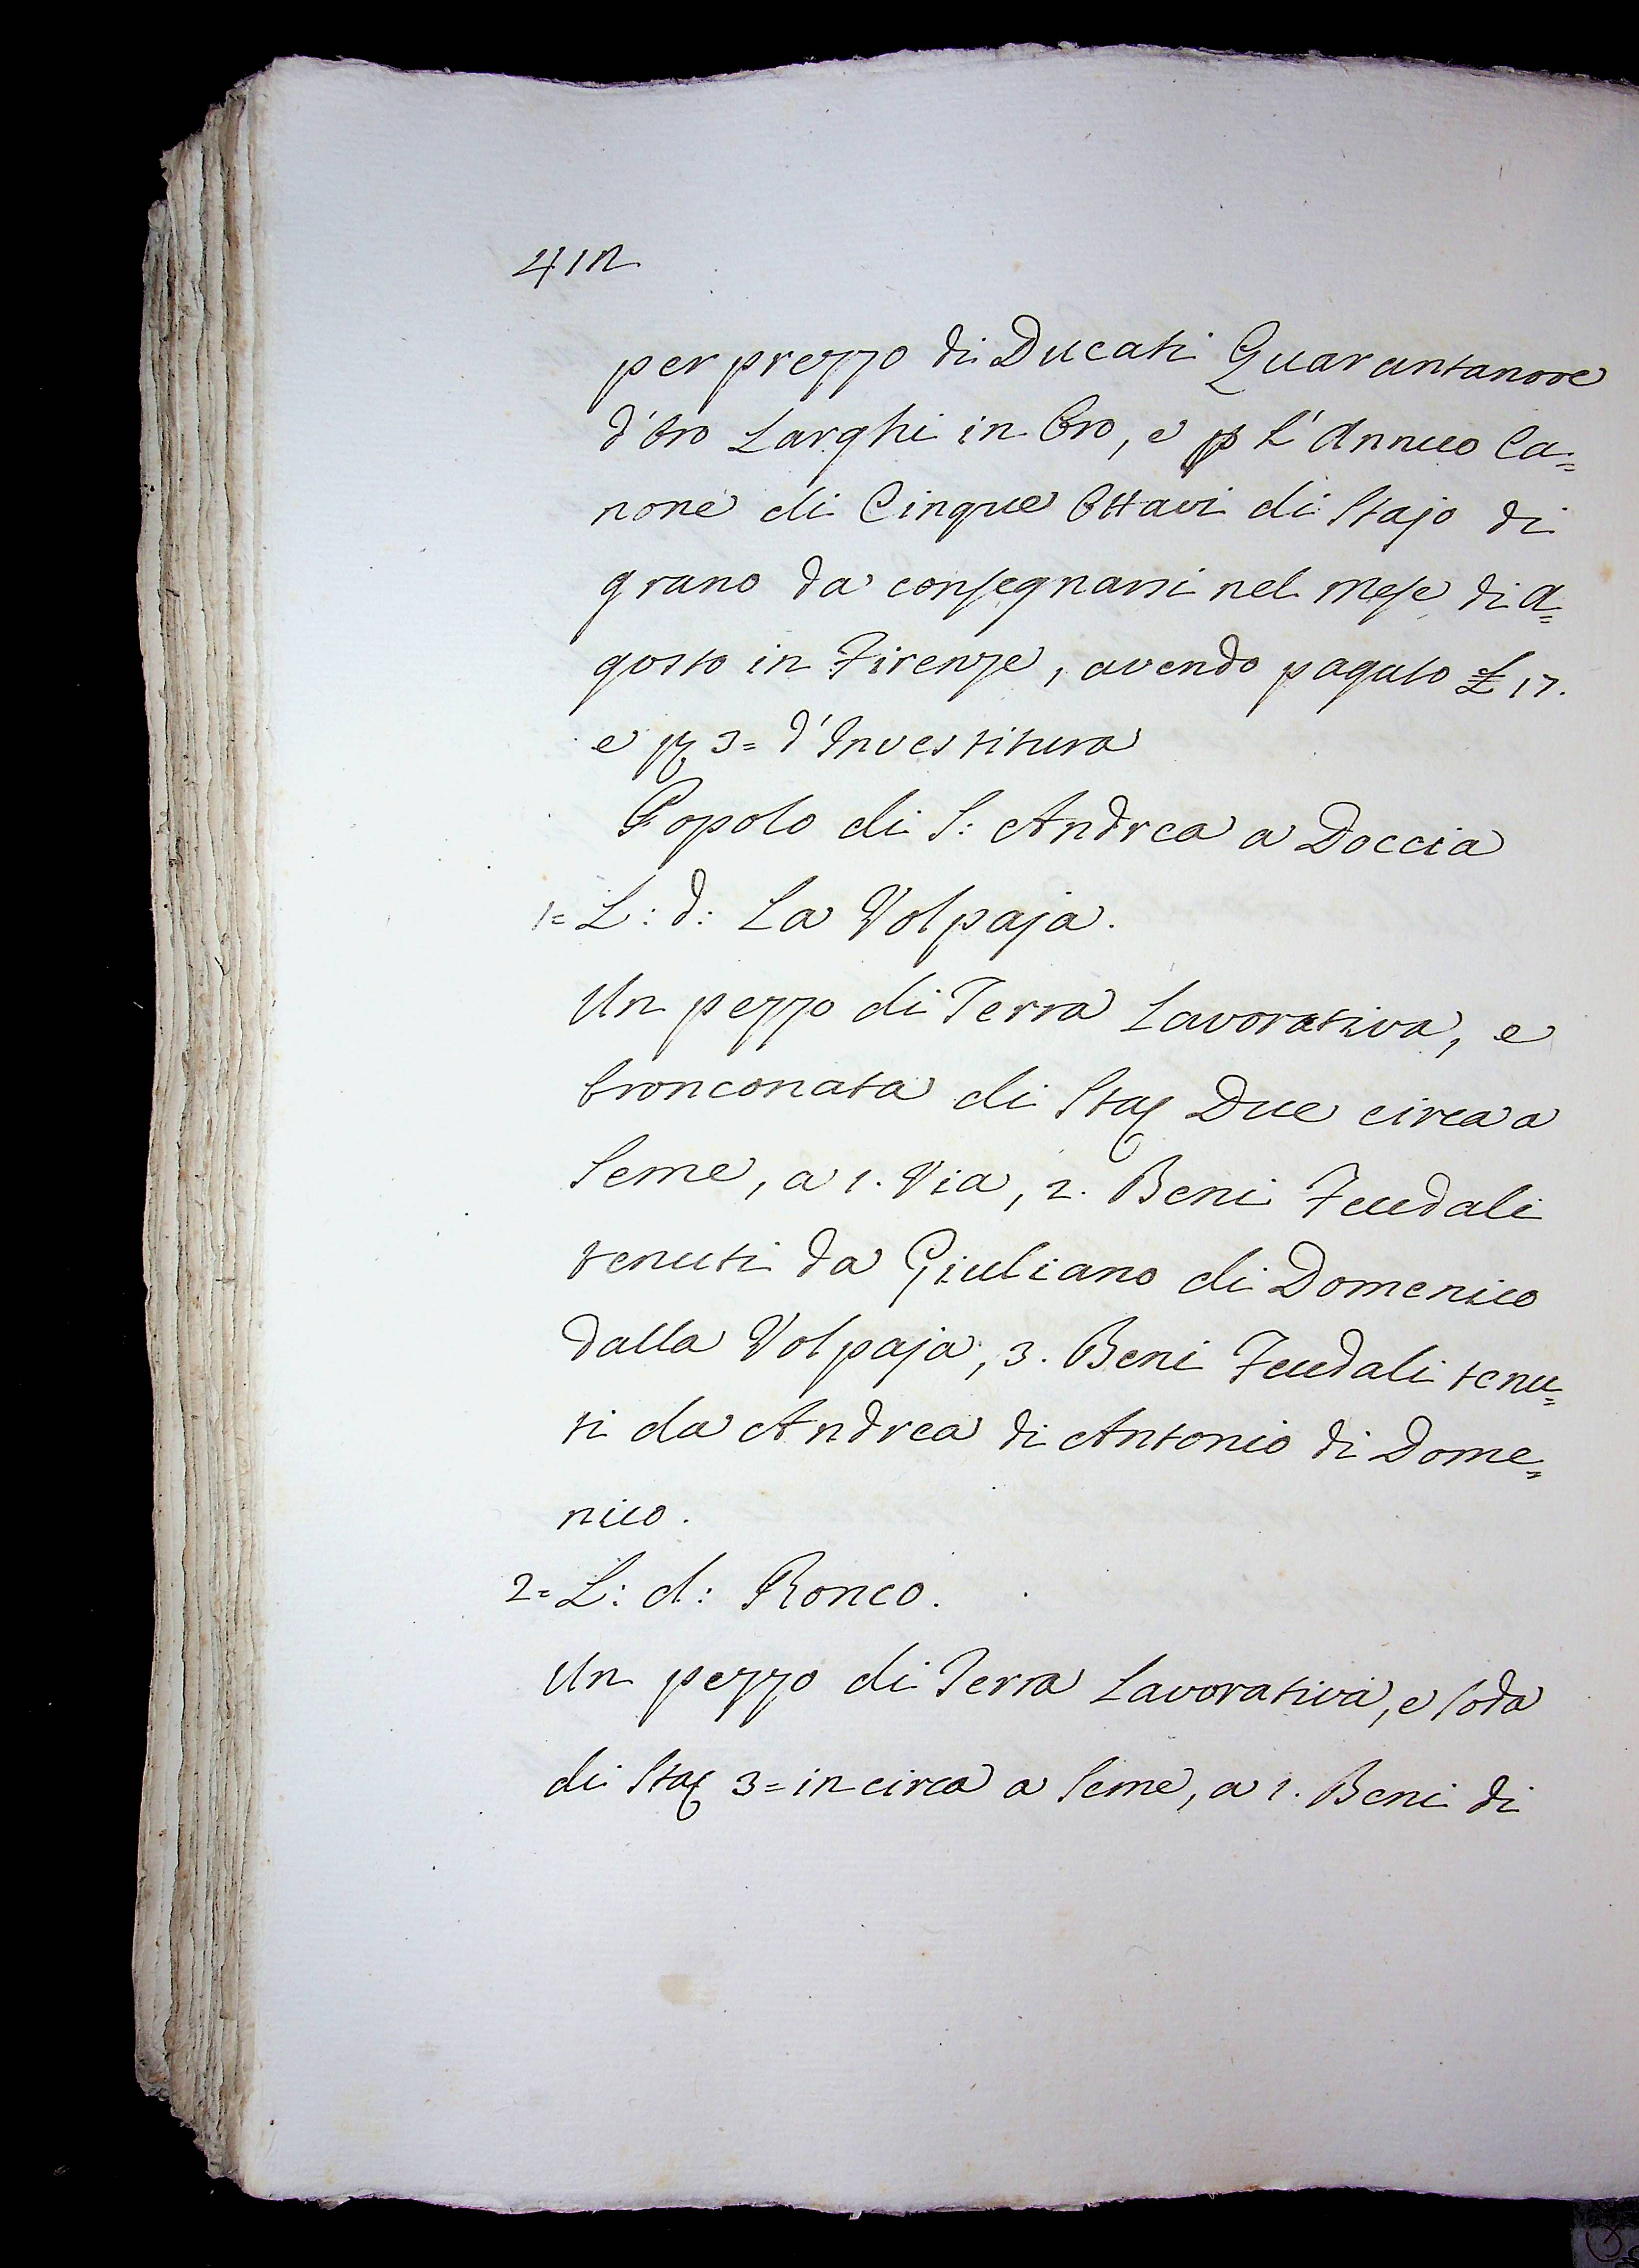 412
per prezzo di Ducati Quarantanove
d'Oro Larghi in Oro, e p l'Annuo Ca=
none di Cinque Ottavi di Stajo di
grano da consegnarsi nel mese di A=
gosto in Firenze, avendo pagato £ 17.
e 3= d'Investitura
Popolo di S: Andrea a Doccia
1= L: d: La Volpaja.
Un pezzo di Terra Lavorativa, e
bronconata di Staj Due circa a
Seme, a 1. Via, 2. Beni Feudali
tenuti da Giuliano di Domenico
dalla Volpaja, 3. Beni Feudali tenu=
ti da Andrea di Antonio di Dome=
nico.
2= L: d: Ronco.
Un pezzo di Terra Lavorativa, e soda
di Staj 3= in circa a Seme, a 1. Beni di